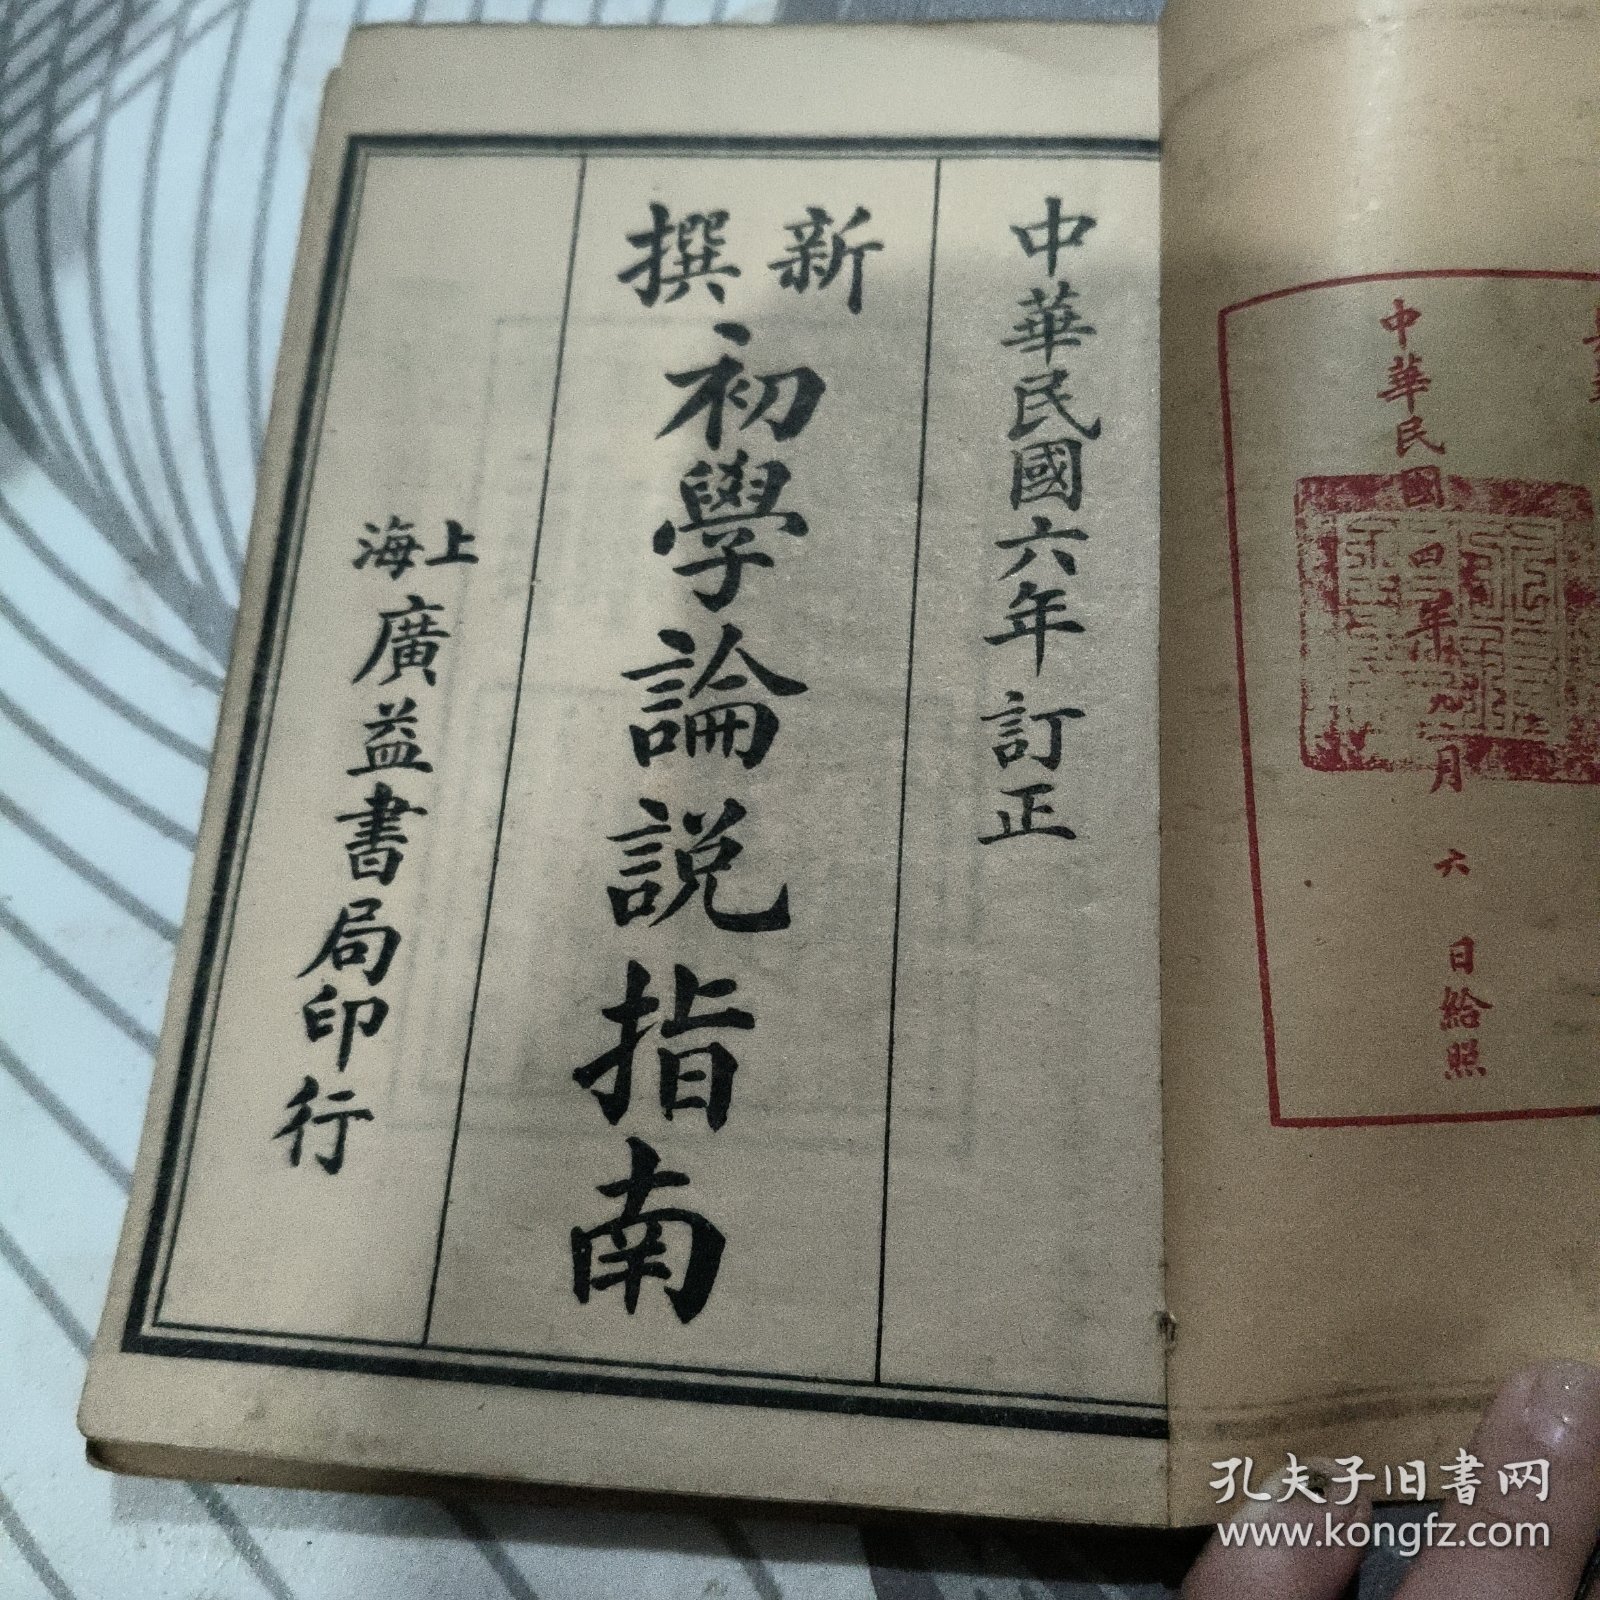 中華民國四年九月六日給照
中華民國六年訂正
新撰
初學論説指南
上海
廣益書局印行
孔夫子旧書网
www.kongfz.com